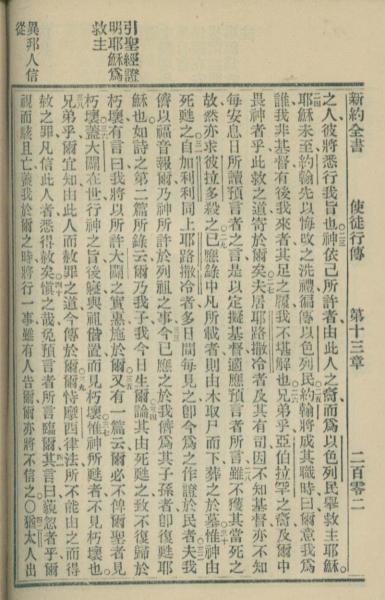 新約全書　使徒行傳　第十三章　二百零二
之人彼將悉行我旨也神依己所許者由此人之裔而爲以色列民舉救主耶穌
耶穌未至約翰先以悔改之洗禮徧傳以色列民約翰將成其職時曰爾意我爲
誰我非基督有後我來者其足之履我不堪解也兄弟乎亞伯拉罕之裔及爾中
畏神者乎此救之道寄於爾矣夫居耶路撒冷者及其有司因不知基督亦不知
每安息日所讀預言者之言是以定擬基督適應預言者所言雖不獲其當死之
故然亦求彼拉多殺之已應錄中凡所載者則由木取尸而下葬之於墓惟神由
死甦之自加利利同上耶路撒冷者多日間每見之卽今爲之作證於民者夫我
儕以福音報爾乃神所許於列祖之事今已應之於我儕爲其子孫者卽復甦耶
穌也如詩之第二篇所錄云爾乃我子我今日生爾論其由死甦之致不復歸於
朽壞有言曰我將以所許大闢之實惠施於爾又有一篇云爾必不俾爾聖者見
朽壞蓋大闢在世行神之旨後寢與祖偕置而見朽壞惟神所甦者不見朽壞也
兄弟乎爾宜知由此人而赦罪之道今傳於爾爾恃摩西律法所不能由之而得
赦之罪凡信此人者悉得赦矣愼之哉免預言者所言臨爾其言曰藐忽者乎爾
視而駭且亡蓋我於爾之時將行一事雖有人告爾爾亦將不信之○猶太人出
引聖經證
明耶穌爲
救主
異邦人信
從